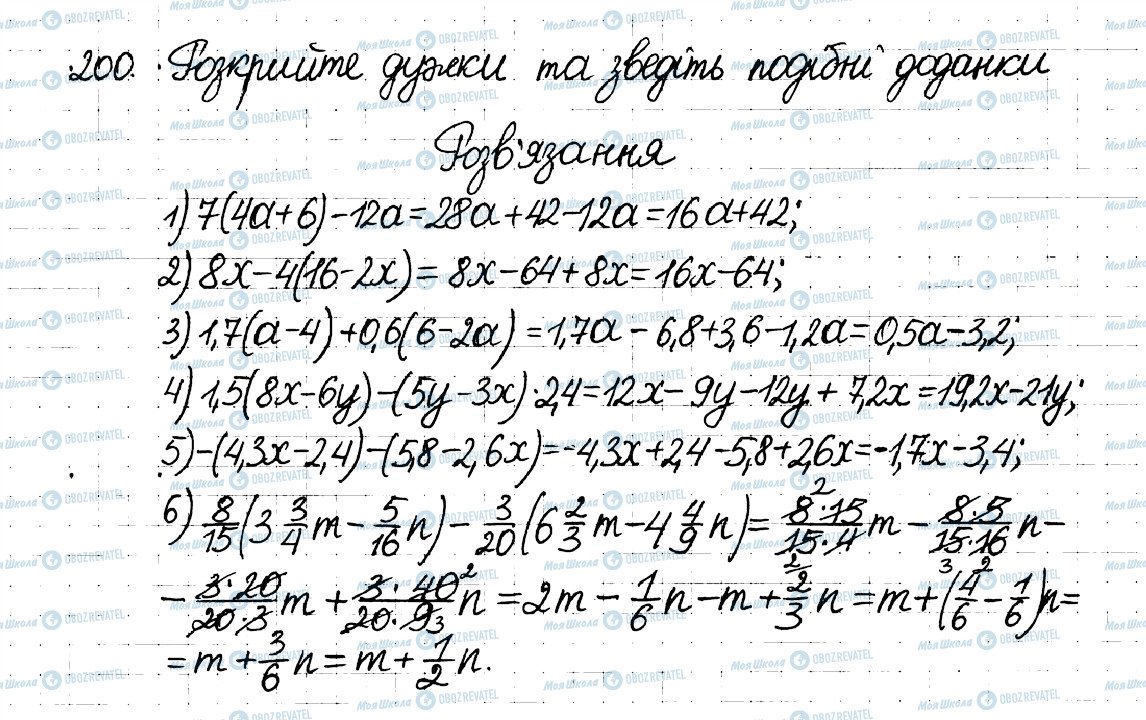 200. Розкрийте дужки та зведіть подібні доданки
Розв'язання
1) 7(4a+6)-12a=28a+42-12a=16a+42;
2) 8x-4(16-2x)=8x-64+8x=16x-64;
3) 1,7(a-4)+0,6(6-2a)=1,7a-6,8+3,6-1,2a=0,5a-3,2;
4) 1,5(8x-6y)-(5y-3x)·2,4=12x-9y-12y+7,2x=19,2x-21y;
5) -(4,3x-2,4)-(5,8-2,6x)=-4,3x+2,4-5,8+2,6x=-1,7x-3,4;
6) 8/15(3 3/4 m - 5/16 n) - 3/20(6 2/3 m - 4 4/9 n) = 8·15/15·4 m - 8·5/15·16 n -
- 3·20/20·3 m + 3·40/20·9 n = 2m - 1/6 n - m + 2/3 n = m + (4/6 - 1/6)n =
= m + 3/6 n = m + 1/2 n.
МояШкола OBOZREVATEL